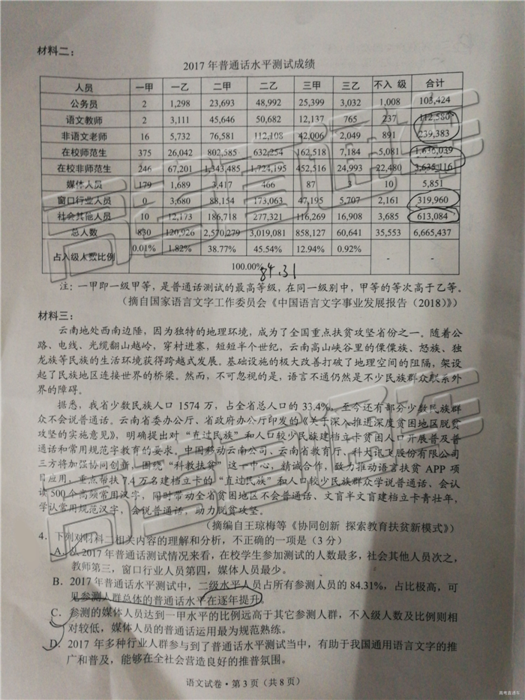 材料二：
2017年普通话水平测试成绩
人员 一甲 一乙 二甲 二乙 三甲 三乙 不入 级 合计
公务员 2 1,298 23,693 48,992 25,399 3,032 1,008 103,424
语文教师 2 3,111 45,646 50,682 12,137 765 237
非语文老师 16 5,732 76,581 42,006 2,049 891 239,383
在校师范生 375 26,042 632,254 162,518 7,184 5,081
在校非师范生 246 67,201 1,343,485 1,724,195 452,516 24,993 22,480 3,635,116
媒体人员 179 1,689 3,417 466 87 10 5,851
窗口行业人员 0 3,680 88,154 173,063 47,195 5,707 2,161 319,960
社会其他人员 10 12,173 186,718 277,321 116,269 16,908 3,685 613,084
总人数 830 120,926 2,570,279 3,019,081 858,127 60,641 35,553 6,665,437
占入级人数比例 0.01% 1.82% 38.77% 45.54% 12.94% 0.92% - -
100.00%
84.31
注：一甲即一级甲等，是普通话测试的最高等级，在同一级别中，甲等的等次高于乙等。
（摘自国家语言文字工作委员会《中国语言文字事业发展报告（2018）》）
材料三：
云南地处西南边陲，因为独特的地理环境，成为了全国重点扶贫攻坚省份之一。随着公
路、电线、光缆翻山越岭，穿村进寨，短短半个世纪，云南高山峡谷里的傈僳族、怒族、独
龙族等民族的生活环境获得跨越式发展。基础设施的极大改善打破了地理空间的阻隔，架设
起了民族地区连接世界的桥梁。然而，不可忽视的是，语言不通仍然是不少民族群众联系外
界的障碍。
据悉，我省少数民族人口1574万，占全省总人口的33.4%，至今还有部分少数民族群
众不会说普通话。云南省委办公厅、省政府办公厅印发的《关于深入推进深度贫困地区脱贫
攻坚的实施意见》，明确提出对“直过民族”和人口较少民族建档立卡贫困人口开展普及普
通话和常用规范字教育的要求。中国移动云南公司、云南省教育厅、科大讯飞股份有限公司
三方将加强协同创新，围绕“科教扶贫”这一中心，精诚合作，致力推动语言扶贫APP项
目应用，重点帮扶7.4万名建档立卡的“直过民族”和人口较少民族群众学说普通话、会认
读500个高频常用汉字，同时带动全省贫困地区不会普通话、文盲半文盲建档立卡青壮年，
学认常用规范汉字，会说普通话，助力脱贫攻坚。
（摘编自王琼梅等《协同创新 探索教育扶贫新模式》）
4．下列对材料二相关内容的理解和分析，不正确的一项是（3分）
A．以2017年普通话测试情况来看，在校学生参加测试的人数最多，社会其他人员次之，
教师第三，窗口行业人员第四，媒体人员最少。
B．2017年普通话水平测试中，二级水平人员占所有参测人员的84.31%，占比极高，可
见参测人群总体的普通话水平在逐年提升。
C．参测的媒体人员达到一甲水平的比例远高于其它参测人群，不入级人数及比例则相
对较低，媒体人员的普通话运用最为规范熟练。
D．2017年多种行业人群参与到了普通话水平测试当中，有助于我国通用语言文字的推
广和普及，能够在全社会营造良好的推普氛围。
语文试卷·第3页（共8页）